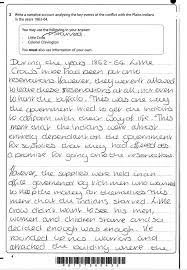 2 Write a narrative account analysing the key events of the conflict with the Plains Indians in the years 1862-64.
You may use the following in your answer:
Little Crow
Colonel Chivington
You must also use information of your own.
During the years 1862-64 Little
Crow's tribe had been put onto
reservations. However, they weren't allowed
to leave these reservations at all, not even
to hunt the buffalo. This was one way the
government tried to get the Indians to
conform with their way of life. This
meant that the Indians were almost
entirely dependant on the government
for supplies that they had offered as
a promise for going onto the reservation.
However, the supplies were held in an
office
to keep the money for themselves. This
meant that the Indians starved. Little
Crow didn't want to see his men,
women and children starve and so
decided enough was enough. He
rounded up his warriors and
attached the building where the